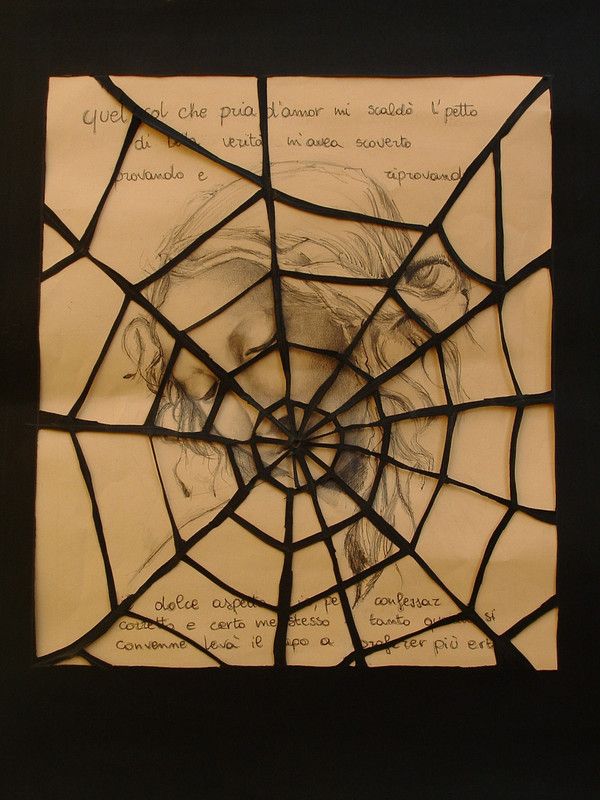 quel sol che pria d'amor mi scaldò l'petto
di verità m'avea scoverto
provando e riprovando
dolce aspetto confessar
corretto e certo me stesso tanto si
convenne levà il capo a proferer più erto